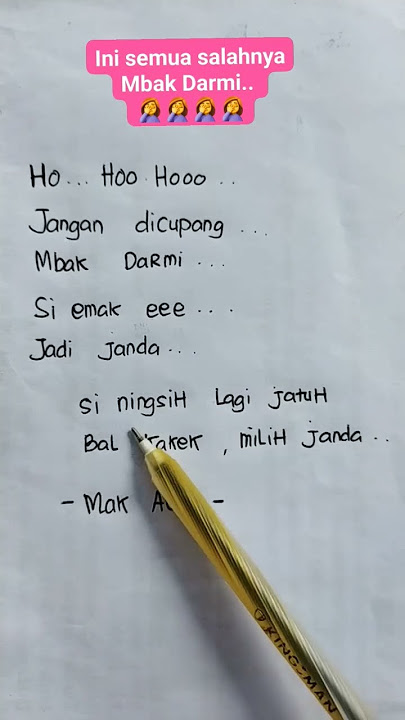 Ini semua salahnya
Mbak Darmi..
🤦‍♀️🤦‍♀️🤦‍♀️🤦‍♀️
Ho... Hoo Hooo ..
Jangan dicupang ...
Mbak Darmi ...
Si emak eee ...
Jadi Janda ...
Si ningsih Lagi jatuh
Bal , milih janda ..
- Mak -
KING-MAN